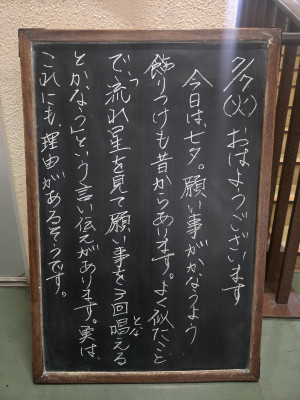 7/7(火)おはようございます
今日は、七夕。願い事がかなうよう
飾りつけも昔からあります。よく似たこと
で、「流れ星を見て願い事を3回唱える
とかなう」という言い伝えがあります。実は、
これにも、理由があるそうです。